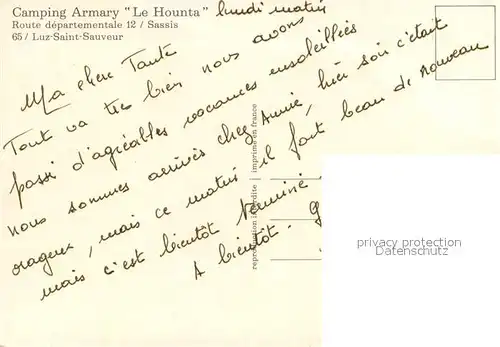 Camping Armary "Le Hounta"
Route départementale 12 / Sassis
65 / Luz-Saint-Sauveur
lundi matin
Ma chère Tante
Tout va très bien nous avons
passé d'agréables vacances ensoleillées
nous sommes arrivés chez Annie, hier soir c'était
orageux, mais ce matin il fait beau de nouveau
mais c'est bientôt terminé
A bientôt -
reproduction interdite | imprimé en france
privacy protection
Datenschutz